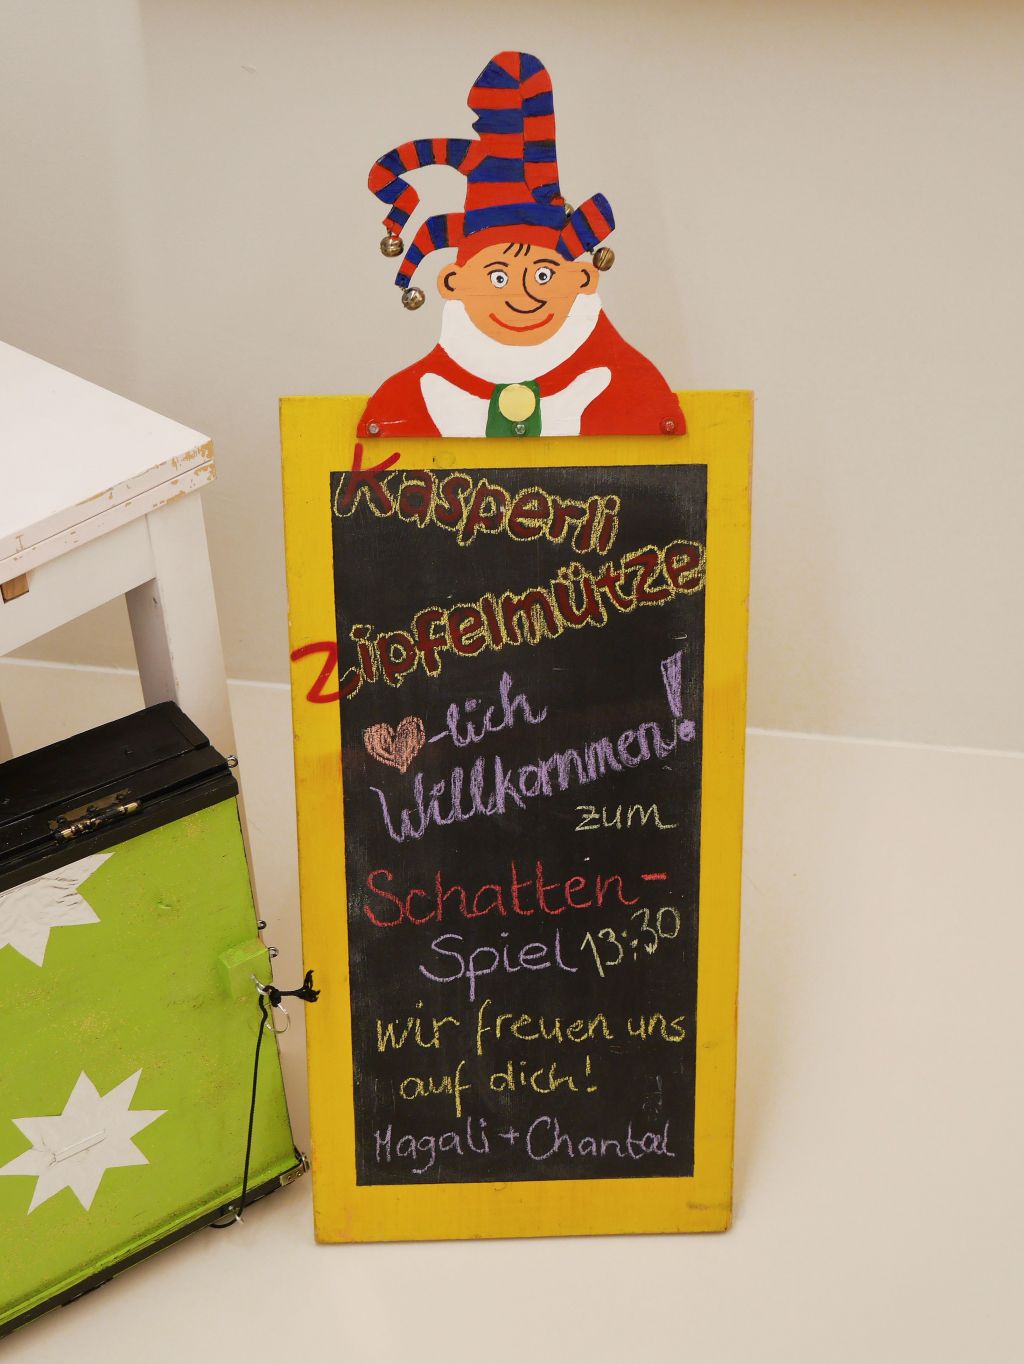 Kasperli
Zipfelmütze
❤-lich
Willkommen!
zum
Schatten-
Spiel 13:30
wir freuen uns
auf dich!
Magali + Chantal